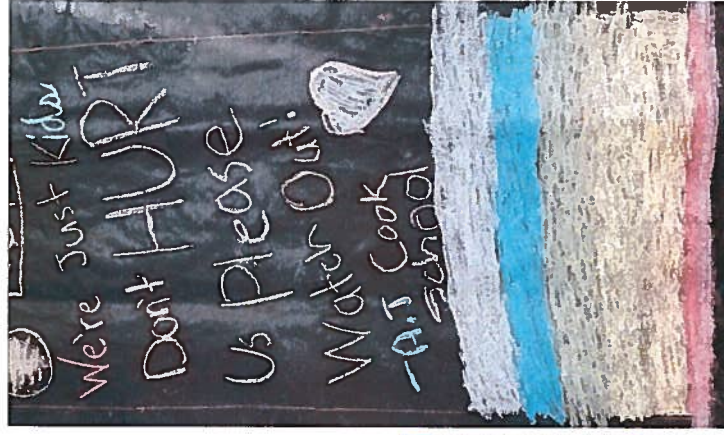 We're Just Kids
Don't HURT
Us Please
Watch Out!
-A.J Cook
School